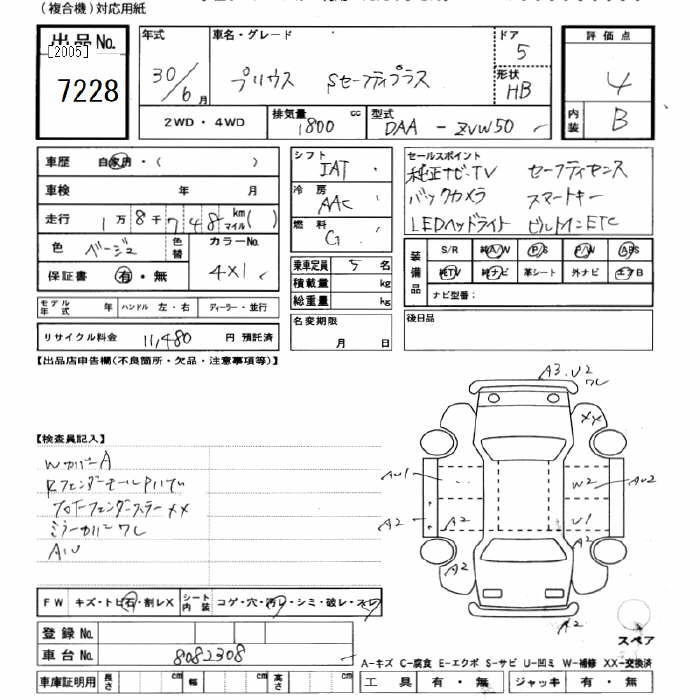 (複合機)対応用紙
出品No.
[2005]
7228
年式
30/6月
車名・グレード
プリウス Sセーフティプラス
ドア
5
形状
HB
評価点
4
内装
B
2WD・4WD
排気量
1800 cc
型式
DAA - ZVW50
車歴 自家用・( )
車検 年 月
走行 1万8千748 km マイル( )
色 ベージュ 色替
カラーNo.
4X1
保証書 有・無
シフト
IAT
冷房
AAC
燃料
G
セールスポイント
純正ナビ・TV セーフティセンス
バックカメラ スマートキー
LEDヘッドライト ビルトインETC
装備品
S/R 純A/W P/S P/W ABS
純TV 純ナビ 革シート 外ナビ エアB
ナビ型番:
乗車定員 5名
積載量 kg
総重量 kg
モデル年式 年 ハンドル 左・右 ディーラー・並行
名変期限
月 日
後日品
リサイクル料金 11,480 円 預託済
【出品店申告欄(不良箇所・欠品・注意事項等)】
A3.U2
ワレ
XX
【検査員記入】
WカバーA
Rフェンダーモール
XX
ミラーカバーワレ
AU
AU1
W2
AU2
A2
A2
U1
A2
A2
A2
FW キズ・トビ石・割レX
シート内装 コゲ・穴・汚レ・シミ・破レ・スレ
登録No.
車台No. 8082308
スペア
A-キズ C-腐食 E-エクボ S-サビ U-凹ミ W-補修 XX-交換済
車庫証明用 長さ cm 幅 cm 高さ cm
工具 有・無 ジャッキ 有・無